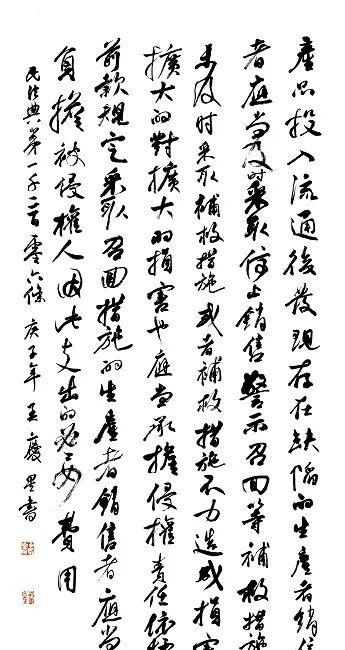 產品投入流通後發現存在缺陷的生產者銷售
者應當及時采取停止銷售警示召回等補救措施
未及时采取補救措施或者補救措施不力造成損害
擴大的對擴大的損害也應當承擔侵權責任依據
前款規定采取召回措施的生產者銷售者應當
負擔被侵權人因此支出的必要費用
民法典第一千二百零六條 庚子年 王慶書